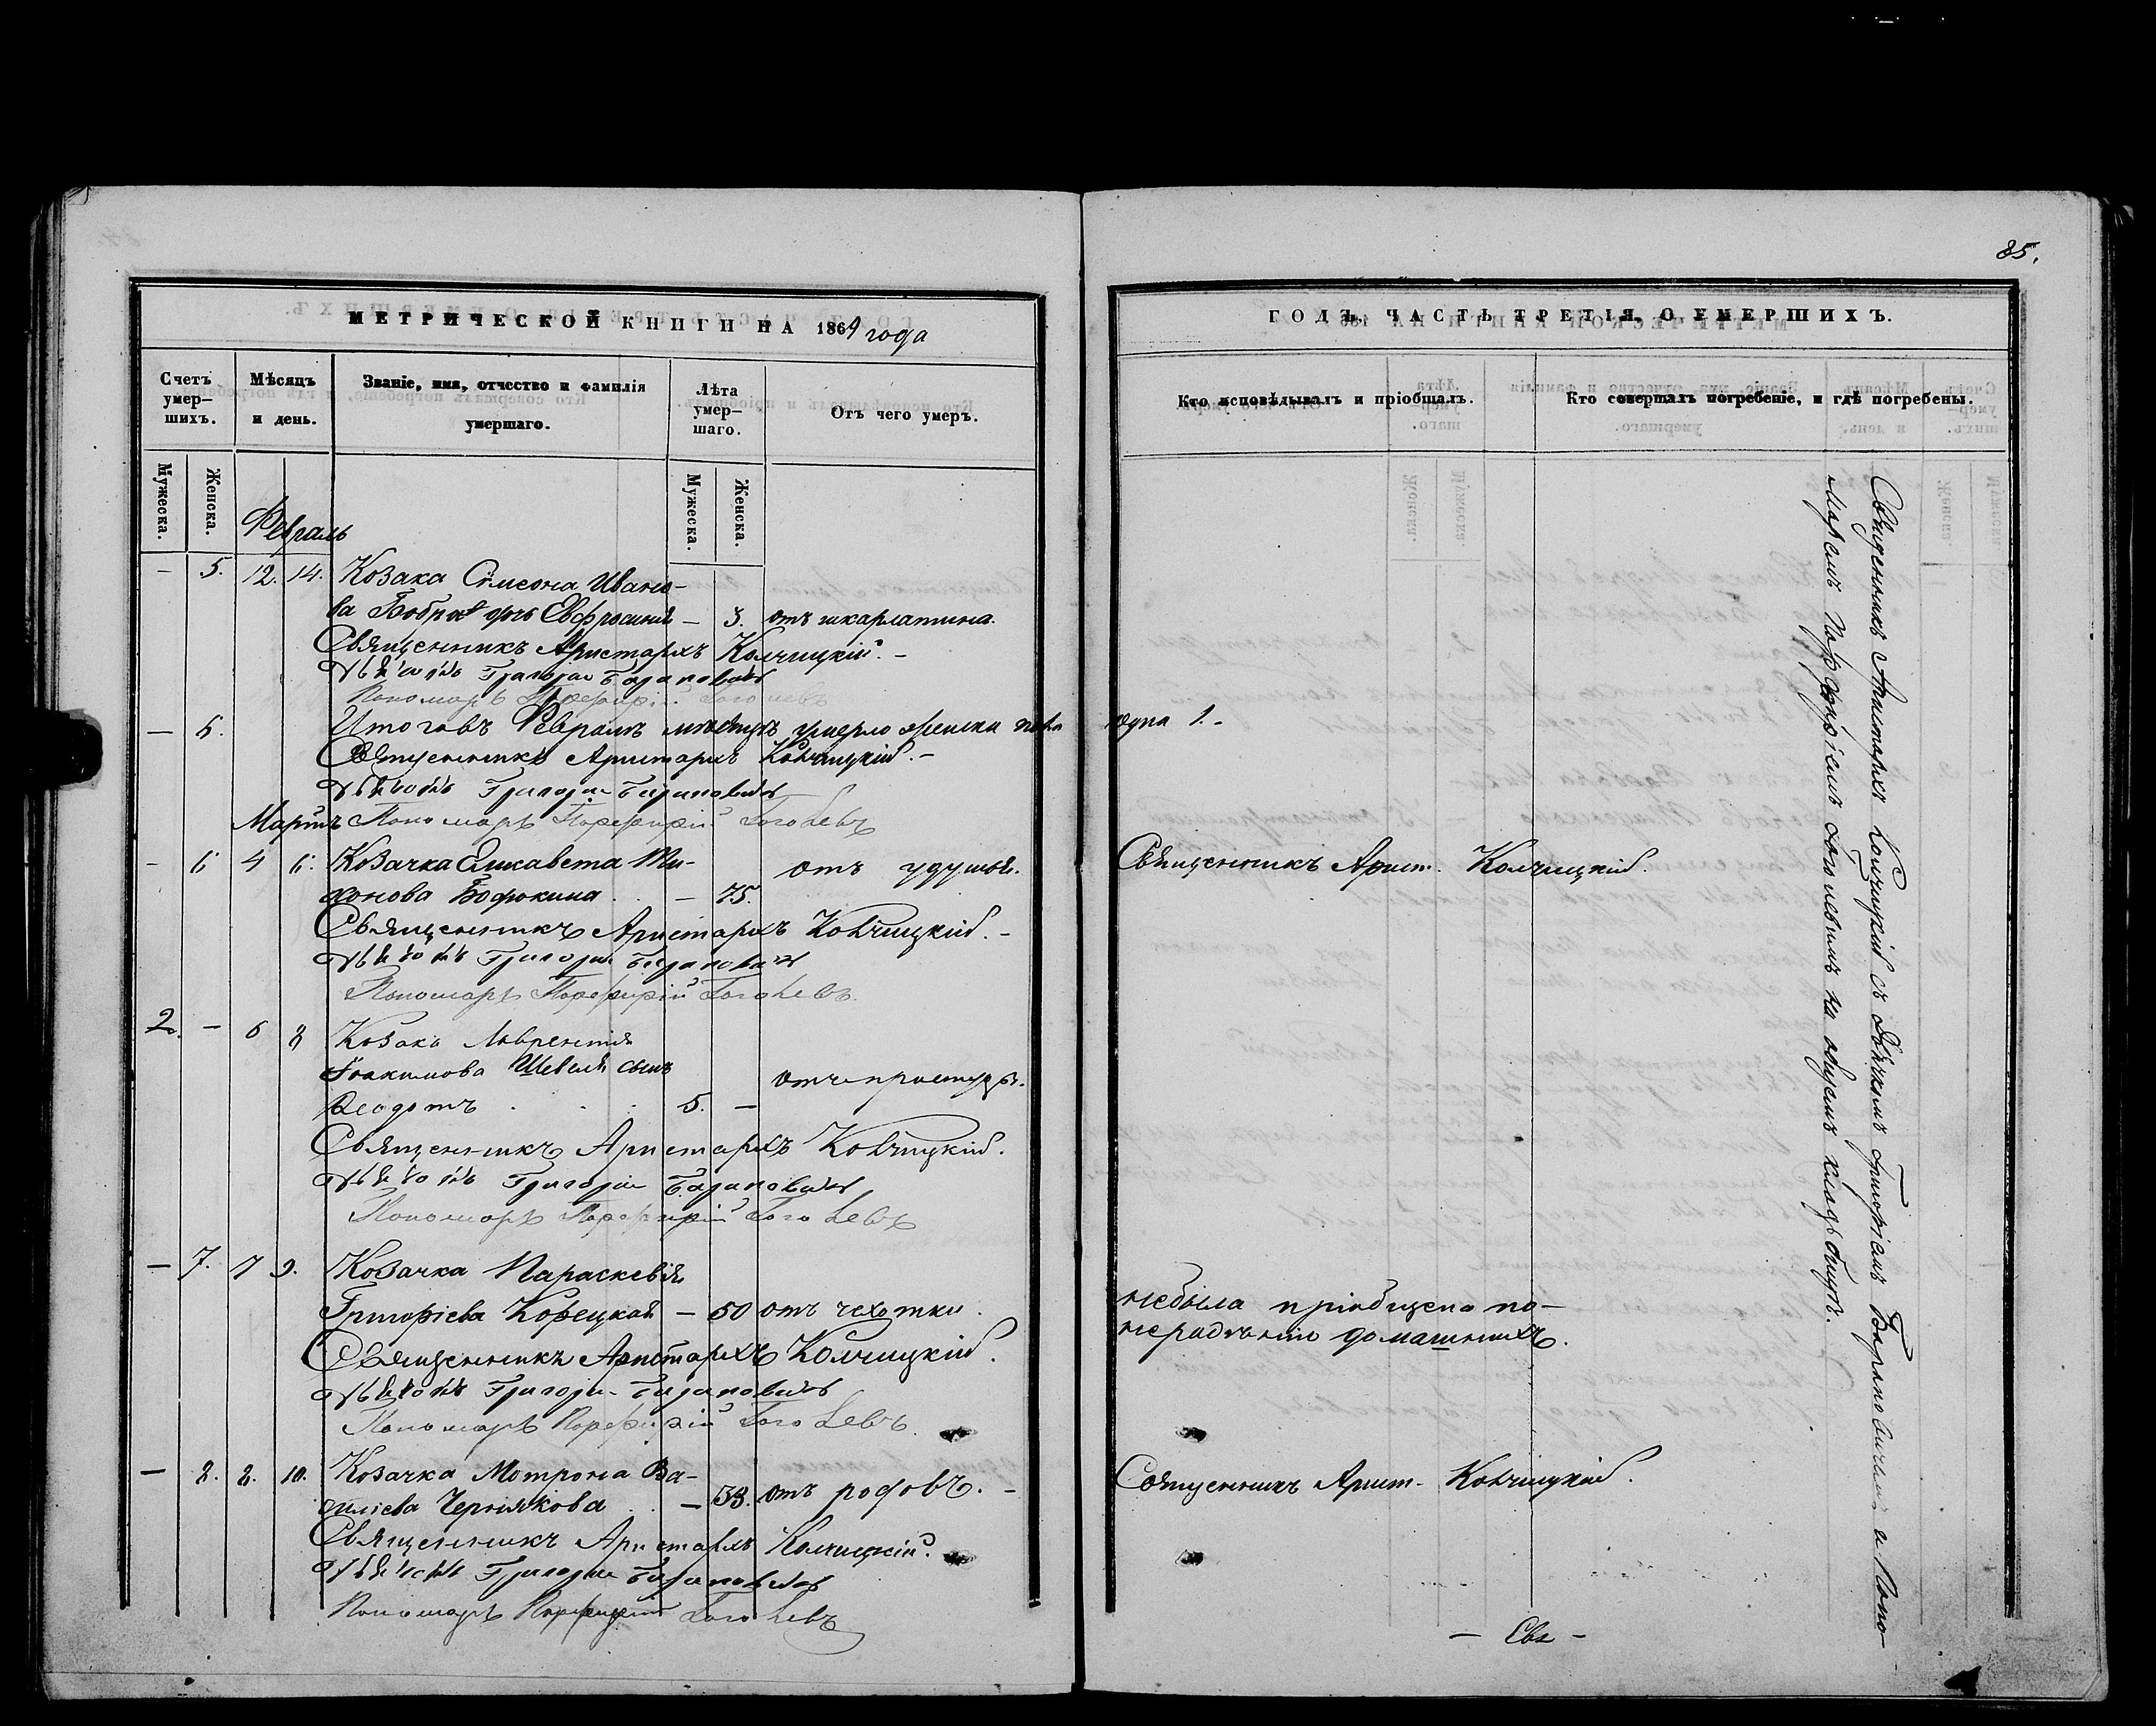 85.
МЕТРИЧЕСКОЙ КНИГИ НА 1864 года
Счетъ умер-шихъ.
Мѣсяцъ и день.
Званіе, имя, отчество и фамилія умершаго.
Лѣта умер-шаго.
Отъ чего умеръ.
Мужеска.
Женска.
Мужеска.
Женска.
Февраль
— 5. 12. 14. Козака Симеона Ивано-
ва Бобра дочь Евфросинія — 3. отъ шкарлатина.
Священникъ Аристархъ Колчицкій. —
Дьячокъ Григорій Барановичъ
Пономарь Порфирій Гоголевъ
— 5. Итого въ Февралѣ мѣсяцѣ умерло женска пола
Священникъ Аристархъ Колчицкій. —
Дьячокъ Григорій Барановичъ
Мартъ Пономарь Порфирій Гоголевъ
— 6 4 6. Козачка Елисавета Ти-
хонова . . — 75. отъ удушья.
Священникъ Аристархъ Колчицкій. —
Дьячокъ Григорій Барановичъ
Пономарь Порфирій Гоголевъ.
2. — 6 8 Козака Лаврентія
Іоакимова Шевеля сынъ
Ѳеодотъ . . . 5. — отъ простуды.
Священникъ Аристархъ Колчицкій.
Дьячокъ Григорій Барановичъ
Пономарь Порфирій Гоголевъ
— 7. 7 9. Козачка Параскевія
Григоріева Корецкая — 50 отъ чехотки.
Священникъ Аристархъ Колчицкій.
Дьячокъ Григорій Барановичъ
Пономарь Порфирій Гоголевъ.
— 8. 8. 10. Козачка Мотрона Ва-
силіева Чернякова . . — 38. отъ родовъ. —
Священникъ Аристархъ Колчицкій.
Дьячокъ Григорій Барановичъ
Пономарь Порфирій Гоголевъ
ГОДЪ, ЧАСТЬ ТРЕТІЯ, О УМЕРШИХЪ.
Кто исповѣдывалъ и пріобщалъ.
Кто совершалъ погребеніе, и гдѣ погребены.
одна 1. —
Священникъ Арист. Колчицкій.
небыла пріобщена по-
нерадѣнію домашнихъ.
Священникъ Арист. Колчицкій.
Священникъ Аристархъ Колчицкій съ Дьячкомъ Григоріемъ Барановичемъ и Поно-
маремъ Порфиріемъ Гоголевымъ на общемъ кладьбищѣ.